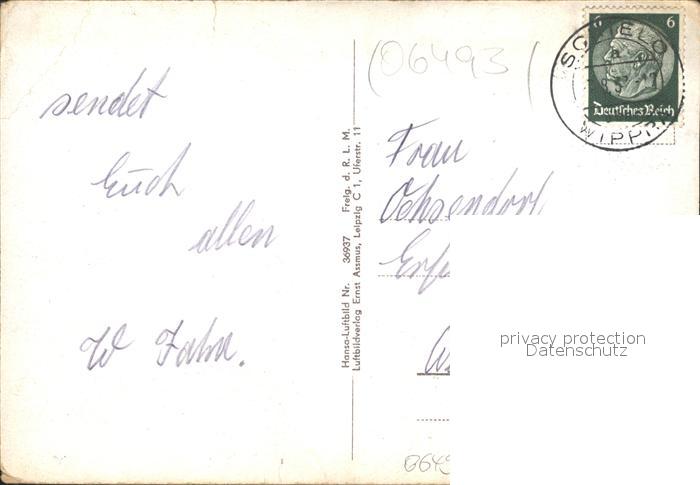 sendet
Euch
allen
W Fahn.
Hansa-Luftbild Nr. 36937 Freig. d. R. L. M.
Luftbildverlag Ernst Assmus, Leipzig C 1, Uferstr. 11
(06493)
6 6
Deutsches Reich
WIPPRA
Frau
Ochsendorf
privacy protection
Datenschutz